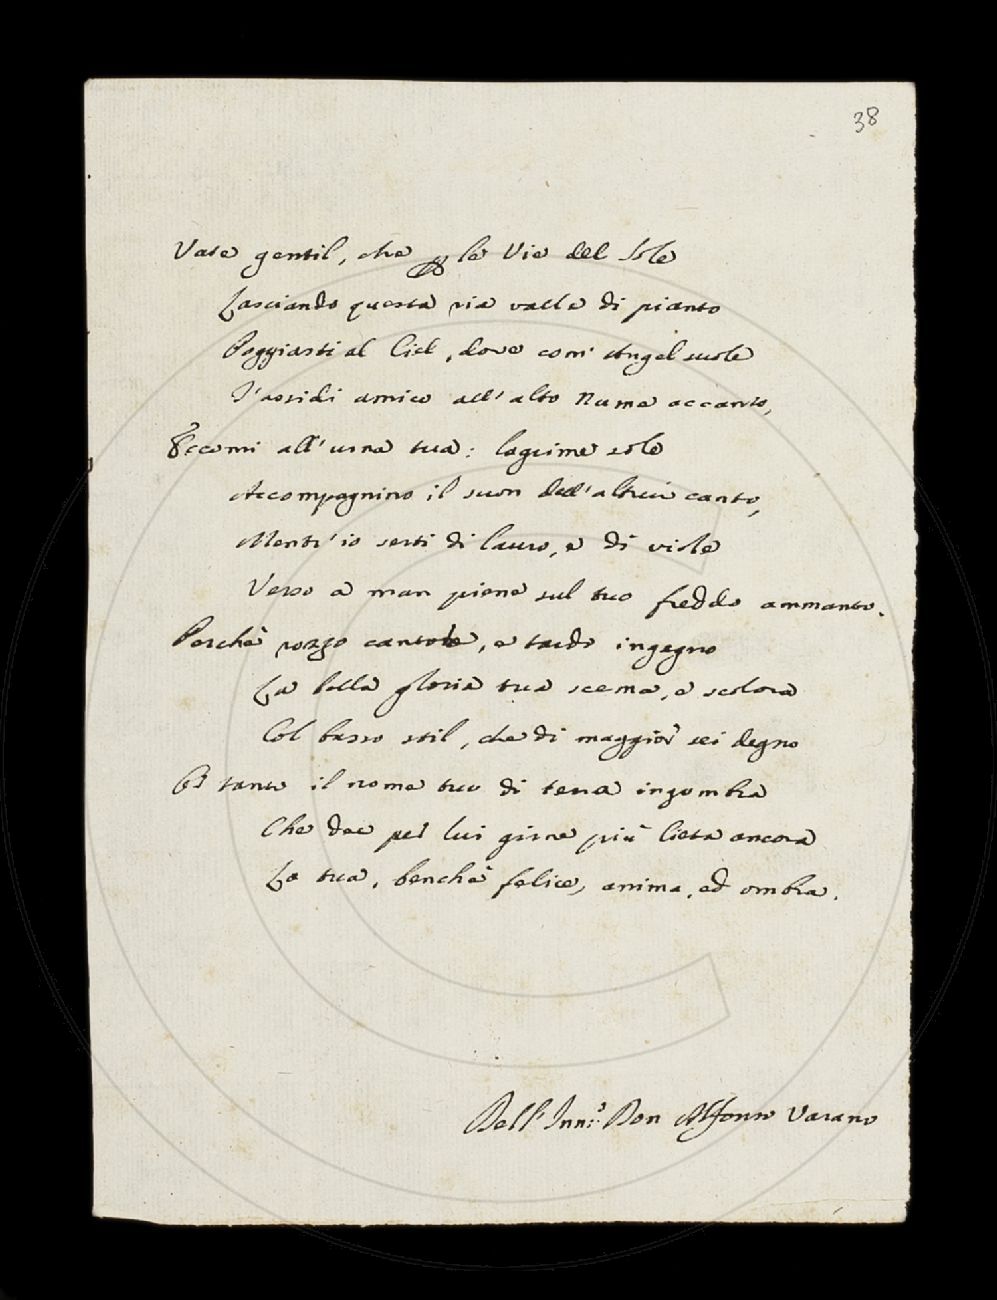 38
Vate gentil, che p le Vie del Sole
Lasciando questa ria valle di pianto
Poggiasti al Ciel, dove com' Angel suole
T'assidi amico all'alto Nume accanto,
Eccomi all'urna tua: lagrime sole
Accompagnino il suon dell'altrui canto,
Mentr'io serti di lauro, e di viole
Verso a man piene sul tuo freddo ammanto.
Perchè rozzo cantore, e tardo ingegno
La bella gloria tua scema, e scolora
Col basso stil, che di maggior sei degno
E tanto il nome tuo di terra ingombra
Che dee per lui girne più lieta ancora
La tua, benchè felice, anima, ed ombra.
Dell' Don Alfonso Varano